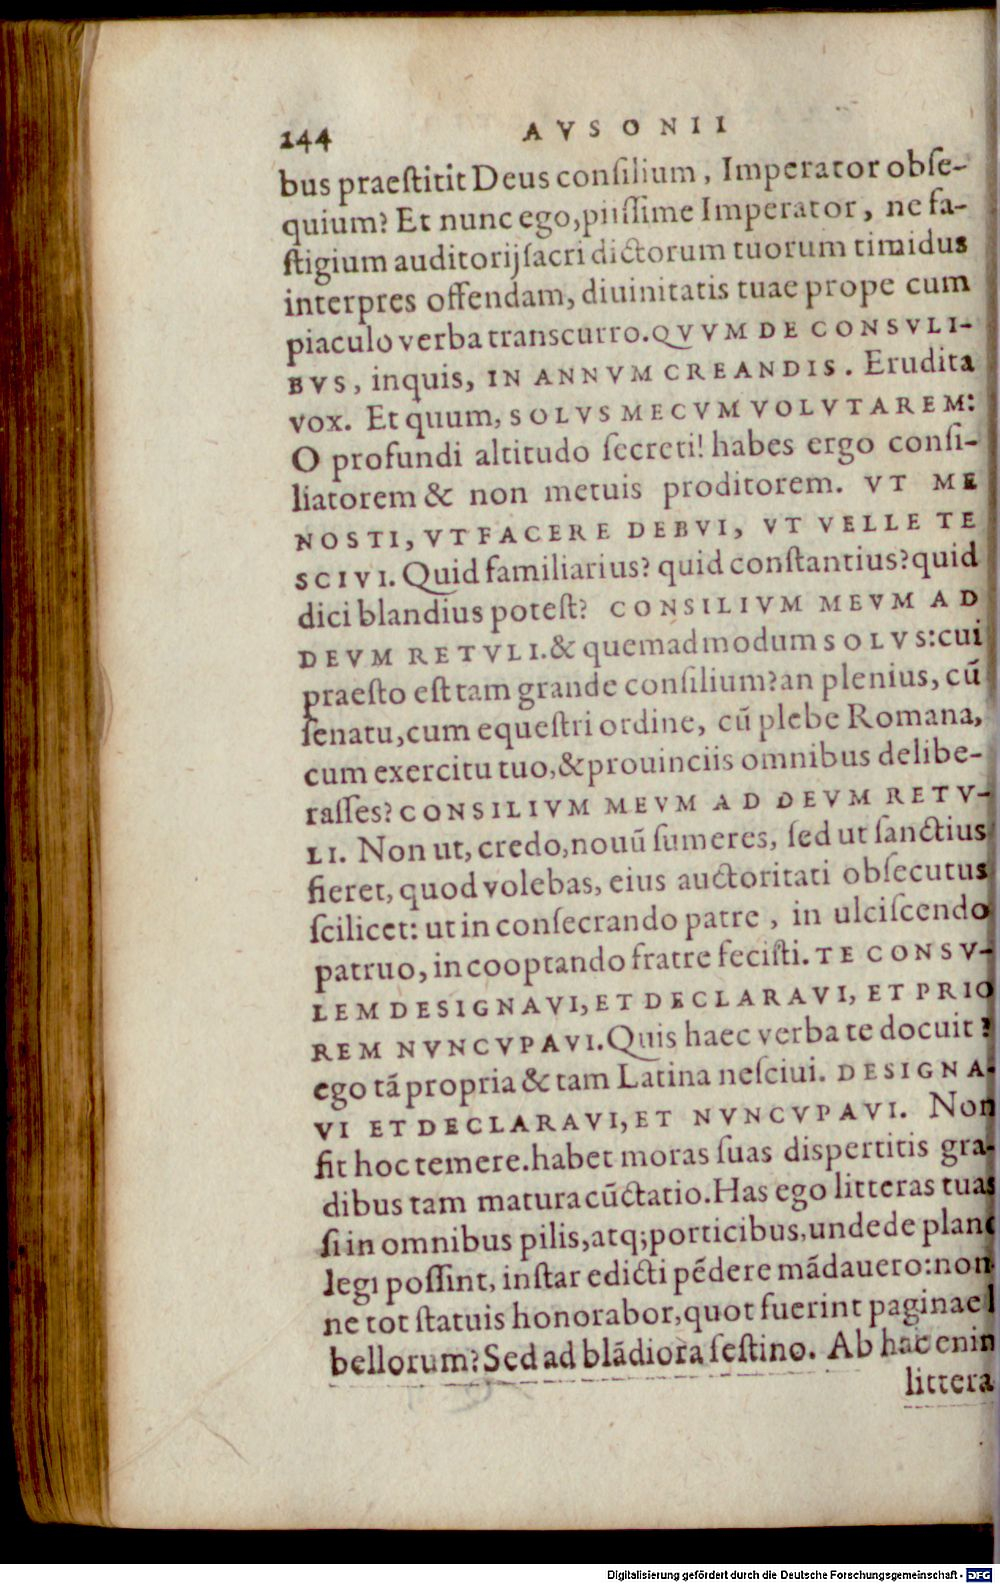 144 AVSONII
bus praestitit Deus consilium, Imperator obse-
quium? Et nunc ego, piissime Imperator, ne fa-
stigium auditorij sacri dictorum tuorum timidus
interpres offendam, diuinitatis tuae prope cum
piaculo verba transcurro. QVVM DE CONSVLI-
BVS, inquis, IN ANNVM CREANDIS. Erudita
vox. Et quum, SOLVS MECVM VOLVTAREM:
O profundi altitudo secreti! habes ergo consi-
liatorem & non metuis proditorem. VT ME
NOSTI, VT FACERE DEBVI, VT VELLE TE
SCIVI. Quid familiarius? quid constantius? quid
dici blandius potest? CONSILIVM MEVM AD
DEVM RETVLI. & quemadmodum SOLVS: cui
praesto est tam grande consilium? an plenius, cū
senatu, cum equestri ordine, cū plebe Romana,
cum exercitu tuo, & prouinciis omnibus delibe-
rasses? CONSILIVM MEVM AD DEVM RETV-
LI. Non ut, credo, nouū sumeres, sed ut sanctius
fieret, quod volebas, eius auctoritati obsecutus
scilicet: ut in consecrando patre, in ulciscendo
patruo, in cooptando fratre fecisti. TE CONSV-
LEM DESIGNAVI, ET DECLARAVI, ET PRIO
REM NVNCVPAVI. Quis haec verba te docuit?
ego tā propria & tam Latina nesciui. DESIGNA-
VI ET DECLARAVI, ET NVNCVPAVI. Non
fit hoc temere. habet moras suas dispertitis gra-
dibus tam matura cūctatio. Has ego litteras tuas
si in omnibus pilis, atq; porticibus, unde de plano
legi possint, instar edicti pēdere mādauero: non
ne tot statuis honorabor, quot fuerint paginae l
bellorum? Sed ad blādiora festino. Ab hac enin
littera
Digitalisierung gefördert durch die Deutsche Forschungsgemeinschaft - DFG